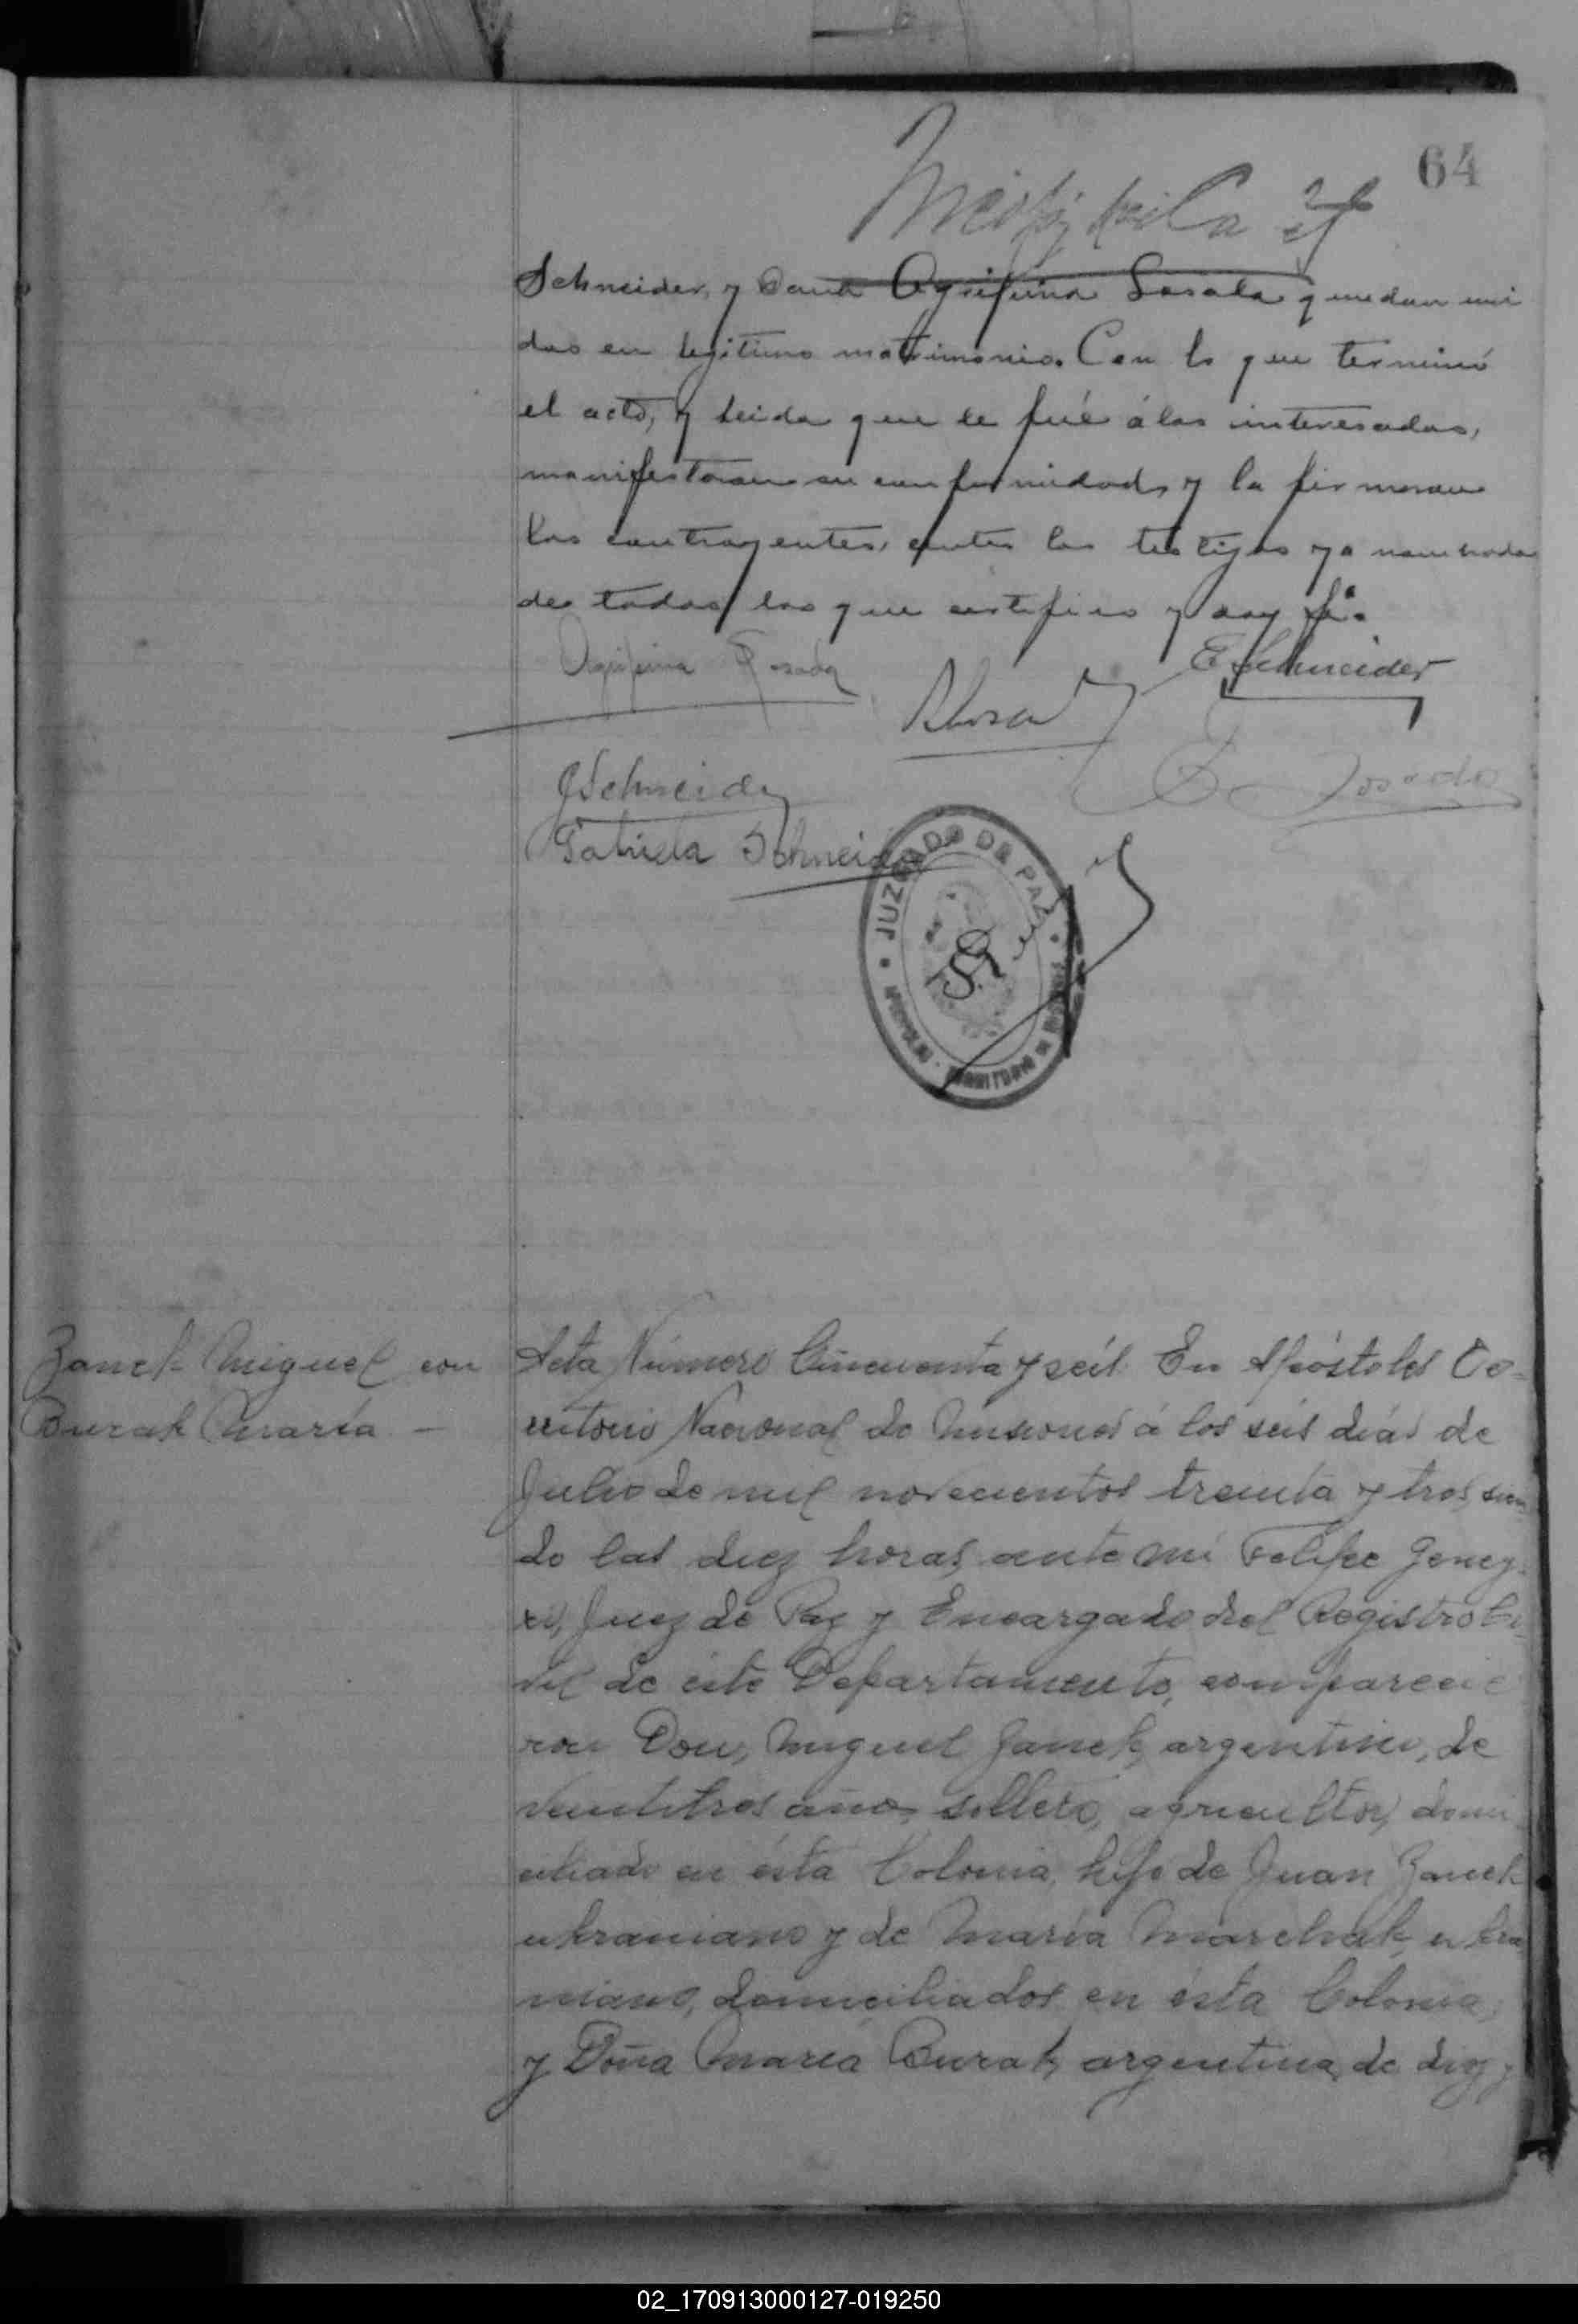 64
Schneider, y Doña Agrifina Losada quedan uni
dos en legitimo matrimonio. Con lo que terminó
el acto, y leida que le fué á los interesados,
manifestaron su conformidad, y la firmaron
los contrayentes, antes los testigos ya nombrados
de todos los que certifico y doy fé.
Agrifina Losada
E Schneider
JSchneider
Losada
Gabriela Schneider
JUZGADO DE PAZ
APOSTOLES - TERRITORIO DE MISIONES
Zanek Miguel con
Burak María —
Acta Número Cincuenta y seis. En Apóstoles Te-
rritorio Nacional de Misiones á los seis días de
Julio de mil novecientos treinta y tres, sien
do las diez horas, ante mi Felipe
Juez de Paz y Encargado del Registro Ci
vil de éste Departamento, comparecie
ron Don, Miguel Zanek, argentino, de
veintitres años, soltero, agricultor, domi
ciliado en ésta Colonia, hijo de Juan Zanek
ukraniano y de María Marchak, ukra
niano, domiciliados en ésta Colonia,
y Doña María Burak, argentina, de diez y